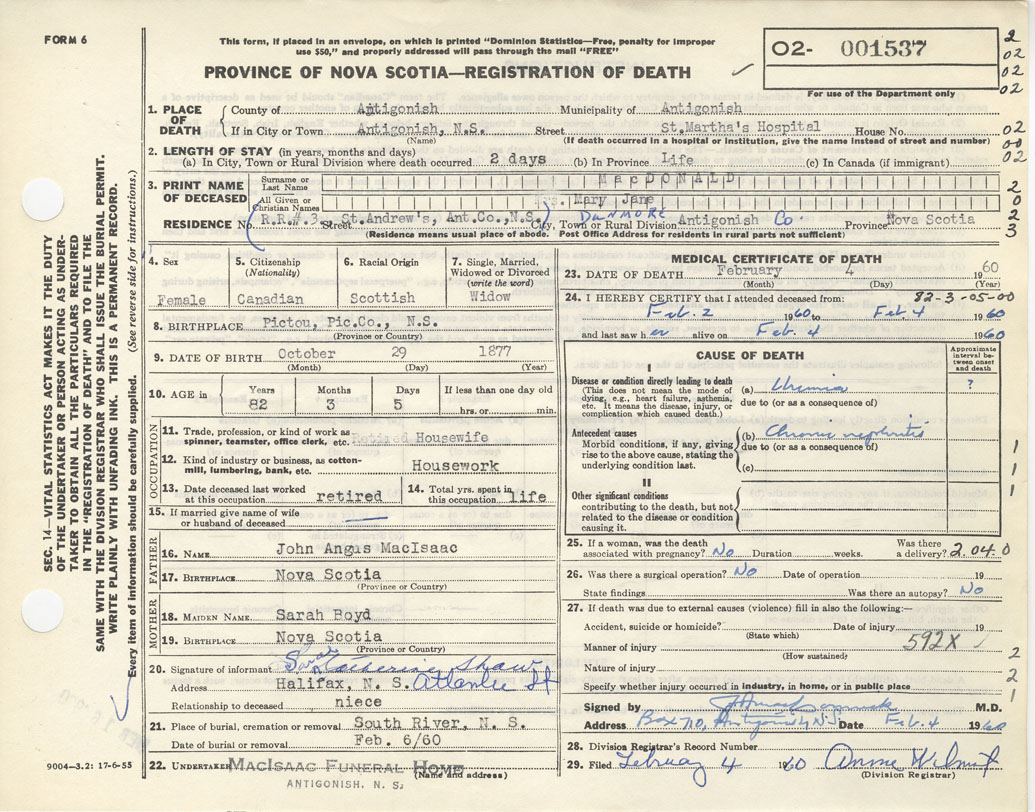 FORM 6
This form, if placed in an envelope, on which is printed "Dominion Statistics—Free, penalty for improper
use $50," and properly addressed will pass through the mail "FREE"
PROVINCE OF NOVA SCOTIA—REGISTRATION OF DEATH
O2- 001537
For use of the Department only
2
02
02
SEC. 14—VITAL STATISTICS ACT MAKES IT THE DUTY
OF THE UNDERTAKER OR PERSON ACTING AS UNDER-
TAKER TO OBTAIN ALL THE PARTICULARS REQUIRED
IN THE "REGISTRATION OF DEATH" AND TO FILE THE
SAME WITH THE DIVISION REGISTRAR WHO SHALL ISSUE THE BURIAL PERMIT.
WRITE PLAINLY WITH UNFADING INK. THIS IS A PERMANENT RECORD.
Every item of information should be carefully supplied. (See reverse side for instructions.)
1. PLACE OF DEATH County of Antigonish Municipality of Antigonish
If in City or Town Antigonish, N.S. Street St.Martha's Hospital House No. 02
(Name) (If death occurred in a hospital or institution, give the name instead of street and number) 00
2. LENGTH OF STAY (in years, months and days) 02
(a) In City, Town or Rural Division where death occurred 2 days (b) In Province Life (c) In Canada (if immigrant)
3. PRINT NAME OF DECEASED Surname or Last Name MacDONALD 2
All Given or Christian Names Mrs. Mary Jane 0
RESIDENCE No. (R.R.#.3 Street St.Andrew's, Ant.Co.,N.S.) City, Town or Rural Division DUNMORE Antigonish Co. Province Nova Scotia 2
(Residence means usual place of abode. Post Office Address for residents in rural parts not sufficient) 3
4. Sex Female
5. Citizenship (Nationality) Canadian
6. Racial Origin Scottish
7. Single, Married, Widowed or Divorced (write the word) Widow
8. BIRTHPLACE Pictou, Pic.Co., N.S.
(Province or Country)
9. DATE OF BIRTH October 29 1877
(Month) (Day) (Year)
10. AGE in Years 82 Months 3 Days 5 If less than one day old hrs. or min.
OCCUPATION
11. Trade, profession, or kind of work as spinner, teamster, office clerk, etc. Retired Housewife
12. Kind of industry or business, as cotton-mill, lumbering, bank, etc. Housework
13. Date deceased last worked at this occupation retired 14. Total yrs. spent in this occupation life
15. If married give name of wife or husband of deceased —
FATHER
16. NAME John Angus MacIsaac
17. BIRTHPLACE Nova Scotia
(Province or Country)
MOTHER
18. MAIDEN NAME Sarah Boyd
19. BIRTHPLACE Nova Scotia
(Province or Country)
20. Signature of informant Sarah Catherine Shaw
Address Halifax, N. S. Atlantic St
Relationship to deceased niece
21. Place of burial, cremation or removal South River, N. S.
Date of burial or removal Feb. 6/60
22. UNDERTAKER MACISAAC FUNERAL HOME
(Name and address)
ANTIGONISH, N. S.
9004—3.2: 17-6-55
MEDICAL CERTIFICATE OF DEATH
23. DATE OF DEATH February 4 1960
(Month) (Day) (Year)
24. I HEREBY CERTIFY that I attended deceased from: 82-3-05-00
Feb. 2 1960 to Feb 4 1960
and last saw her alive on Feb. 4 1960
CAUSE OF DEATH
Approximate interval between onset and death
I
Disease or condition directly leading to death
(This does not mean the mode of dying, e.g., heart failure, asthenia, etc. It means the disease, injury, or complication which caused death.)
(a) Uremia ?
due to (or as a consequence of)
Antecedent causes
Morbid conditions, if any, giving rise to the above cause, stating the underlying condition last.
(b) Chronic nephritis 1
due to (or as a consequence of)
(c) 1
II
Other significant conditions
contributing to the death, but not related to the disease or condition causing it. 1
25. If a woman, was the death associated with pregnancy? No Duration weeks. Was there a delivery? 2.04.0
26. Was there a surgical operation? No Date of operation 19
State findings Was there an autopsy? No
27. If death was due to external causes (violence) fill in also the following:—
Accident, suicide or homicide? Date of injury 19
(State which)
Manner of injury 592X
(How sustained) 2
Nature of injury 2
Specify whether injury occurred in industry, in home, or in public place 1
Signed by M.D.
Address Box 710, Antigonish N.S. Date Feb. 4 1960
28. Division Registrar's Record Number
29. Filed February 4 1960 Anne Wilmot
(Division Registrar)